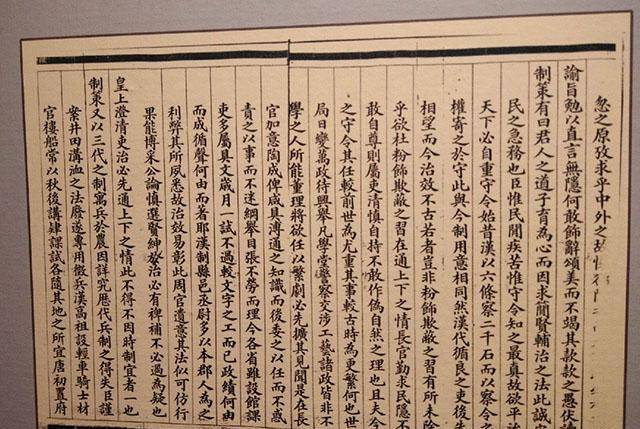 忽之原攷求乎中外之故
諭旨勉以直言無隱何敢飾辭頌美而不竭其款款之愚伏讀
制策有曰君人之道子育為心而因求簡賢輔治之法此誠
民之急務也臣惟民間疾苦惟守令知之最真故欲平治
天下必自重守令始昔漢以六條察二千石而以察令之
權寄之於守此與今制用意相同然漢代循良之吏後先
相望而今治效不古若者豈非粉飾欺蔽之習有所未除
乎欲杜粉飾欺蔽之習在通上下之情長官勤求民隱不
敢自尊則屬吏清慎自持不敢作偽自然之理也且夫今
之守令其任較前世為尤重其事較古時為更繁何也世
局日變萬政待興舉凡學堂警察交涉工藝諸政皆非不
學之人所能董理將欲任以繁劇必先擴其見聞是在長
官加意陶成俾咸具溥通之知識而後委之以任而不惑
責之以事而不迷綱舉目張不勞而理今各省雖設館課
吏多屬具文歲月一試不過較文字之工而已政績何由
而成循聲何由而著耶漢制縣邑丞尉多以本郡人為之
利弊其所夙悉故治效易彰此周官遺意其法似可仿行
果能博采公論慎選賢紳於治必有裨補不必過為疑也
皇上澄清吏治必先通上下之情此不得不因時制宜者一也
制策又以三代之制寓兵於農因詳究歷代兵制之得失臣謹
案井田溝洫之法廢遂專用徵兵漢高祖設輕車騎士材
官樓船常以秋後講肄課試各隨其地之所宜唐初置府